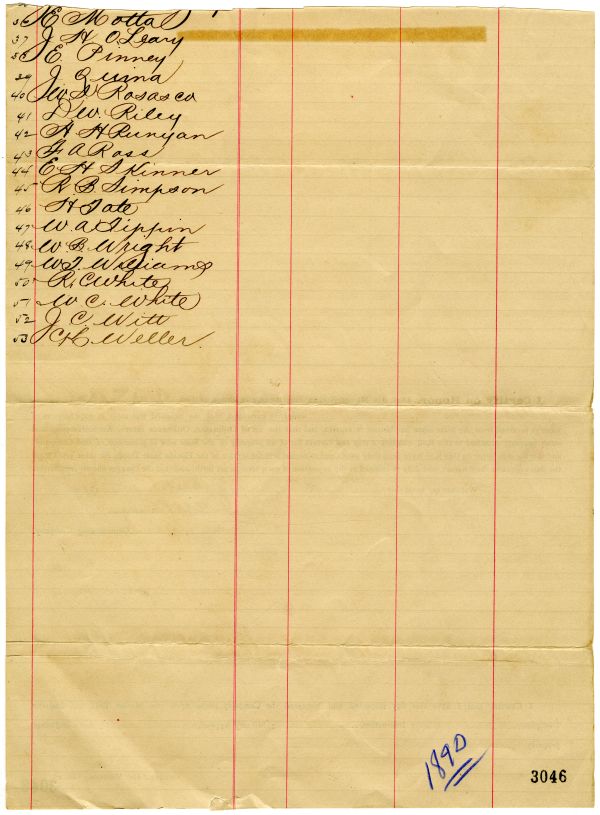 36 E Motta
37 J H O'Leary
38 E Pinney
39 J Quina
40 Wm S Rosasco
41 D W. Riley
42 H H Runyan
43 F A Ross
44 E H Skinner
45 R B Simpson
46 H Tate
47 W. A. Tippin
48 W B Wright
49 W J. Williams
50 R. C White
51 W C. White
52 J C. Witt
53 C H. Weller
1890
3046